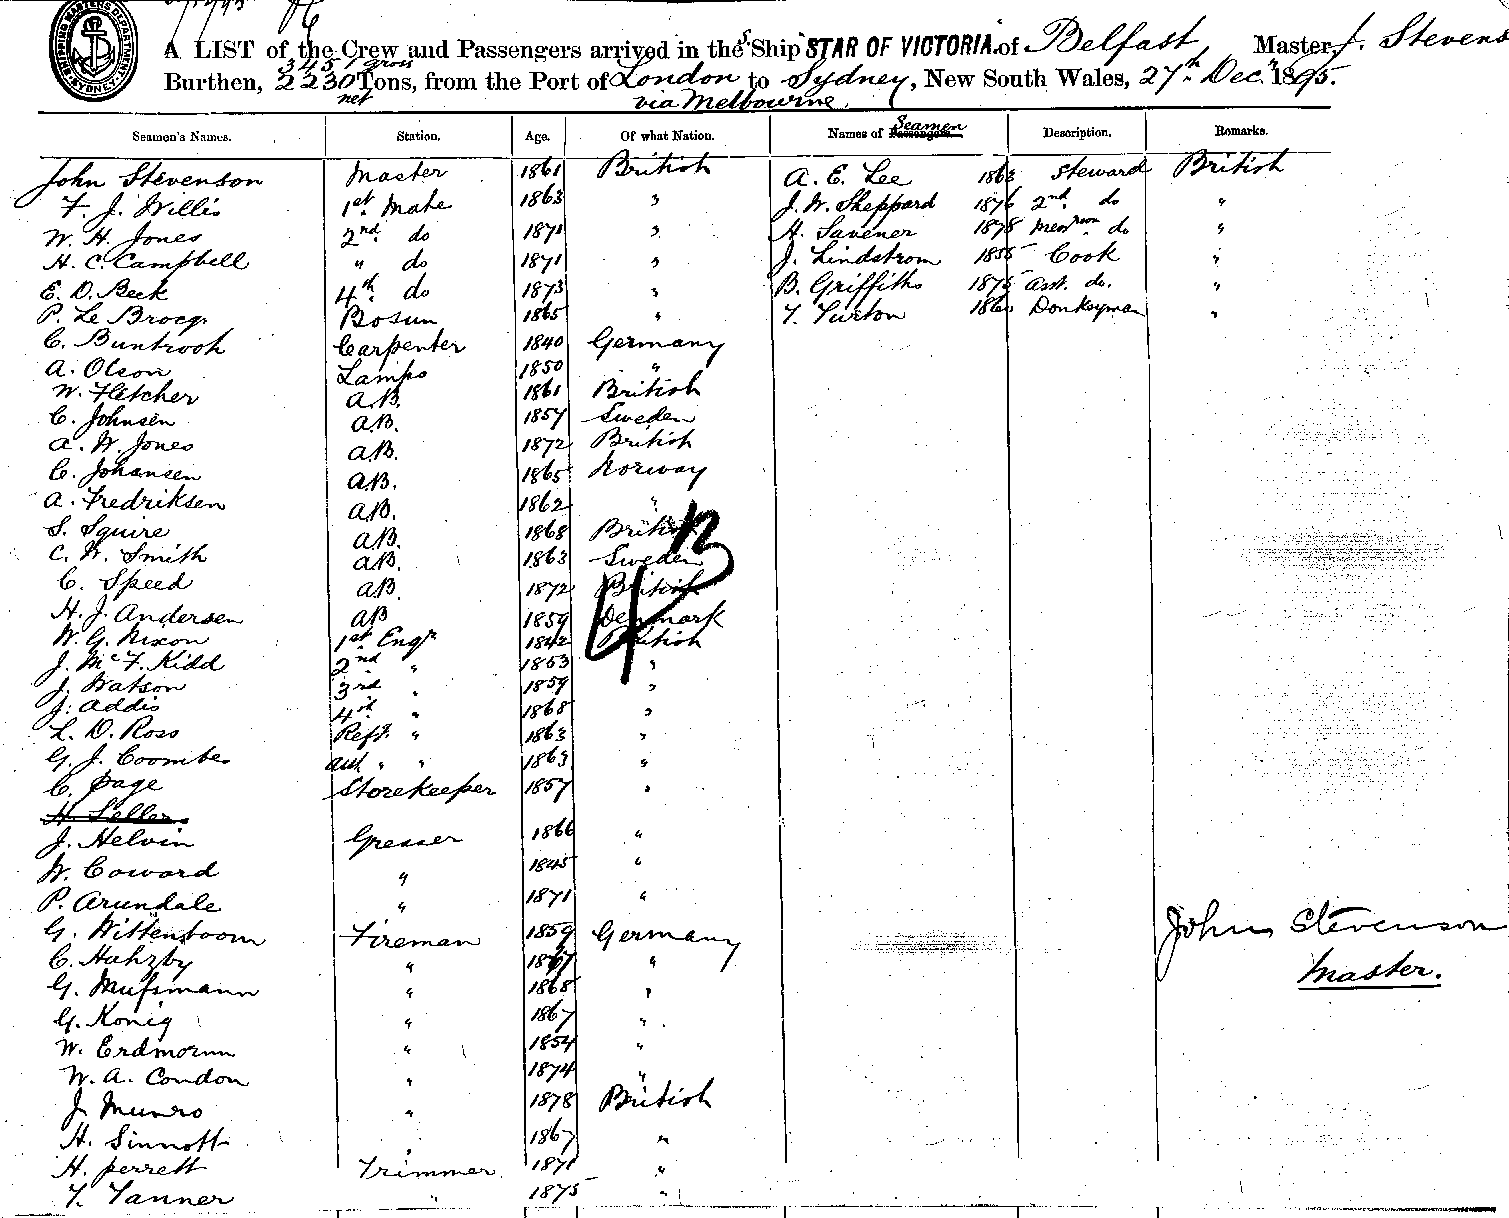 SHIPPING MASTERS DEPARTMENT SYDNEY
A LIST of the Crew and Passengers arrived in the S Ship STAR OF VICTORIA. of Belfast, Master, J. Stevens
Burthen, 3457 gross 2230 net Tons, from the Port of London to Sydney, New South Wales, 27th Dec. 1895.
via Melbourne
Seamen's Names. Station. Age. Of what Nation. Names of Passengers Seamen Description. Remarks.
John Stevenson Master 1861 British A. E. Lee 1863 Steward British
F. J. Willis 1st Mate 1863 " J. W. Sheppard 1876 2nd do "
W. H. Jones 2nd do 1871 " H. Savener 1878 do "
H. C. Campbell " do 1871 " J. Lindstrom 1855 Cook "
E. D. Beck 4th do 1873 " B. Griffiths 1875 asst. do. "
P. Le Brocq Bosun 1865 " T. Turton 1860 Donkeyman "
C. Buntrooh Carpenter 1840 Germany
A. Olson Lamps 1850 "
W. Fletcher A.B. 1861 British
C. Johnsen A.B. 1857 Sweden
A. W. Jones A.B. 1872 British
C. Johansen A.B. 1865 Norway
A. Fredriksen A.B. 1862 "
S. Squire A.B. 1868 British
C. W. Smith A.B. 1863 Sweden
C. Speed A.B. 1872 British
H. J. Andersen A.B 1859 Denmark
W. G. Nixon 1st Engr 1842 British
J. McF. Kidd 2nd " 1853 "
J. Watson 3rd " 1859 "
J. Addis 4th " 1868 "
L. D. Ross Refr. " 1863 "
G. J. Coombes asst " " 1863 "
C. Page Storekeeper 1857 "
H. Sellers
J. Helvin Greaser 1866 "
W. Coward " 1845 "
P. Arundale " 1871 "
G. Wittenboom Fireman 1859 Germany
C. Hahzby " 1867 "
G. Mussmann " 1868 "
G. König " 1867 "
W. Erdmornn " 1854 "
W. A. Condon " 1874 "
J. Munro " 1878 British
H. Sinnott " 1867 "
H. Perrett Trimmer 1871 "
T. Tanner " 1875 "
43
John Stevenson
Master.